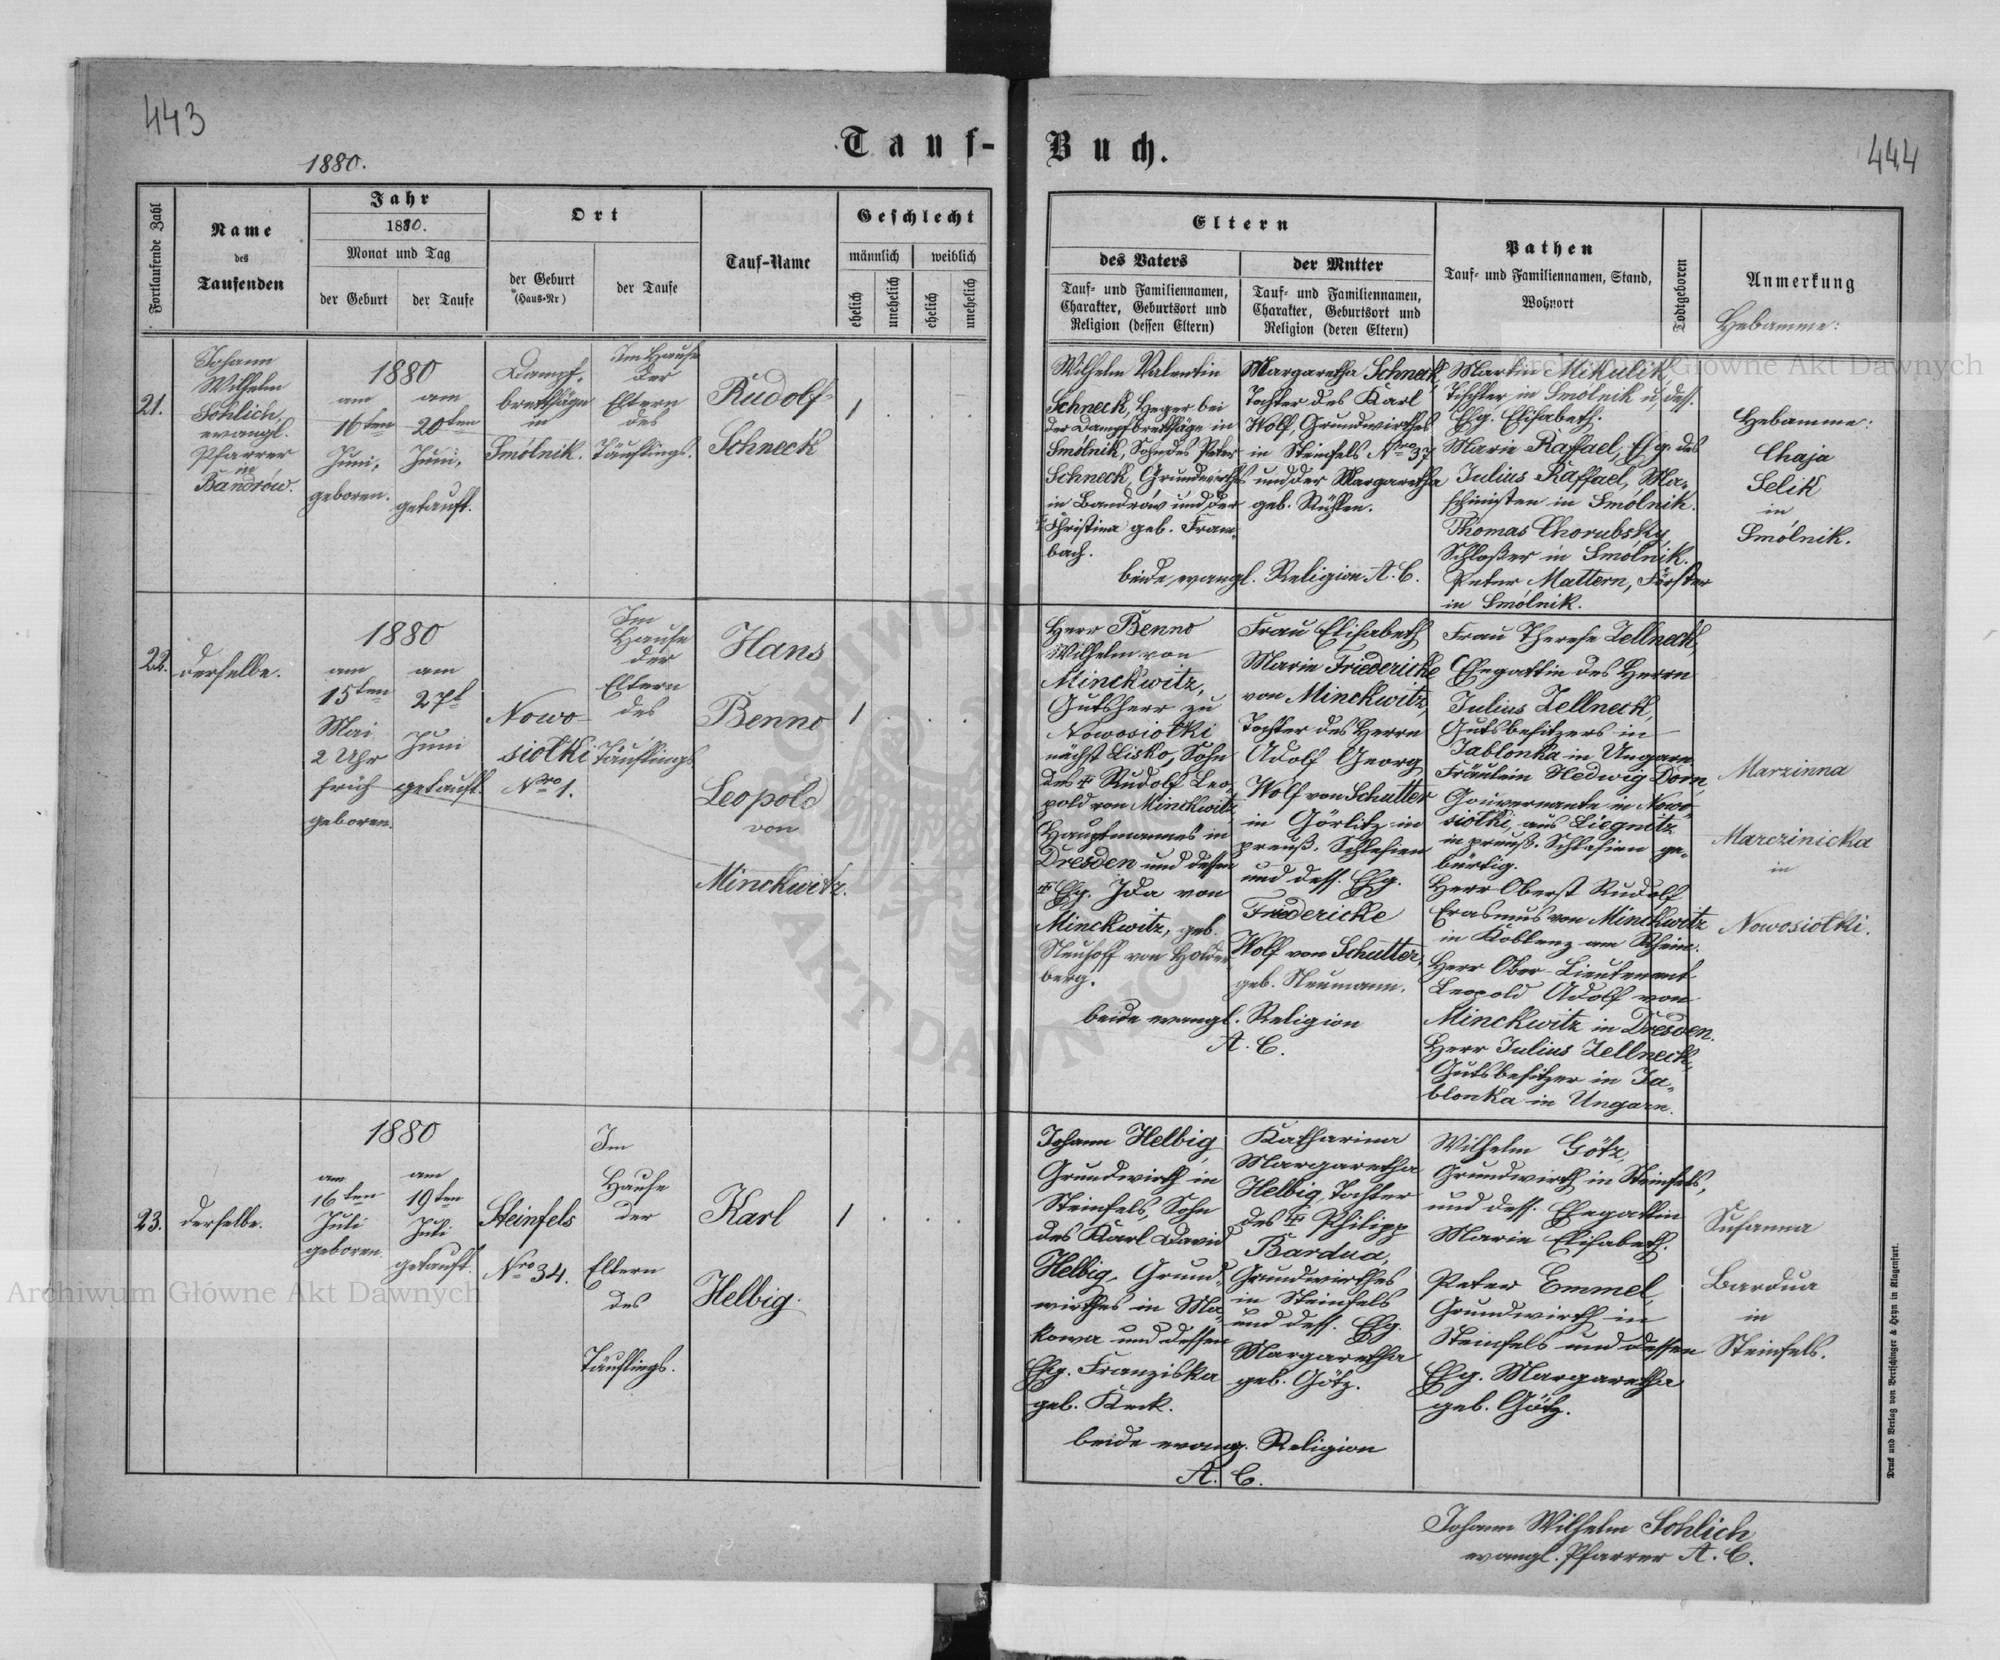 443
444
Tauf-Buch.
1880.
Fortlaufende Zahl
Name
des
Taufenden
Jahr
1880.
Monat und Tag
der Geburt
der Taufe
Ort
der Geburt
(Haus-Nr)
der Taufe
Tauf-Name
Geschlecht
männlich
weiblich
ehelich
unehelich
ehelich
unehelich
Eltern
des Vaters
Tauf- und Familiennamen,
Charakter, Geburtsort und
Religion (dessen Eltern)
der Mutter
Tauf- und Familiennamen,
Charakter, Geburtsort und
Religion (deren Eltern)
Pathen
Tauf- und Familiennamen, Stand,
Wohnort
Todtgeboren
Anmerkung
Hebamme:
21.
Johann
Wilhelm
Sohlich,
evangl.
Pfarrer
in
Bandrów.
1880
am
16ten
Juni,
geboren.
am
20ten
Juni,
getauft.
Dampf-
brettsäge
in
Smólnik.
Im Hause
der
Eltern
des
Täuflings.
Rudolf
Schneck
1
Wilhelm Valentin
Schneck, Heger bei
der Dampfbrettsäge in
Smólnik, Sohn des Peter
Schneck, Grundwirthes
in Bandrów und der
Christina geb. Fram-
bach.
Margaretha Schneck,
Tochter des Karl
Wolf, Grundwirthes
in Steinfels Nro 37
und der Margaretha
geb.
beide evangl. Religion A. C.
Martin Mikulik,
Tischler in Smólnik u. dess.
Ehg. Elisabeth.
Marie Raffael, Ehg. des
Julius Raffael, Ma-
schinisten in Smólnik.
Thomas Chorubsky,
Schloßer in Smólnik.
Peter Mattern, Förster
in Smólnik.
Hebamme:
Chaja
Selik
in
Smólnik.
22.
derselbe.
1880
am
15ten
Mai
2 Uhr
früh
geboren.
am
27t
Juni
getauft.
Nowo-
siolki
Nro 1.
Im
Hause
der
Eltern
des
Täuflings
Hans
Benno
Leopold
von
Minckwitz.
1
Herr Benno
Wilhelm von
Minckwitz,
Gutsherr zu
Nowosiolki
nächst Lisko, Sohn
des † Rudolf Leo-
pold von Minckwitz,
Hauptmannes in
Dresden und dessen
† Ehg. Ida von
Minckwitz, geb.
Neuhoff von Holder-
berg.
Frau Elisabeth
Marie Friedericke
von Minckwitz,
Tochter des Herrn
Adolf Georg
Wolf von Schutter
in Görlitz in
preuß. Schlesien
und dess. Ehg.
Friedericke
Wolf von Schutter,
geb. Neumann.
beide evangl. Religion
A. C.
Frau Therese Zellneck,
Ehegattin des Herrn
Julius Zellneck,
Gutsbesitzers in
Jablonka in Ungarn
Fräulein Hedwig Dorn,
Gouvernante in Nowo-
siolki, aus Liegnitz
in preuß. Schlesien ge-
bürtig.
Herr Oberst Rudolf
Erasmus von Minckwitz
in Koblenz am Rhein.
Herr Ober-Lieutenant
Leopold Adolf von
Minckwitz in Dresden.
Herr Julius Zellneck,
Gutsbesitzer in Ja-
blonka in Ungarn.
Marzinna
Marczinicka
in
Nowosiolki.
23.
derselbe.
1880
am
16ten
Juli
geboren.
am
19ten
Juli
getauft.
Steinfels
Nro 34.
Im
Hause
der
Eltern
des
Täuflings.
Karl
Helbig.
1
Johann Helbig,
Grundwirth in
Steinfels, Sohn
des Karl David
Helbig, Grund-
wirthes in Ma-
kowa und dessen
Ehg. Franziska
geb. Keck.
Katharina
Margaretha
Helbig, Tochter
des † Philipp
Bardua,
Grundwirthes
in Steinfels
und dess. Ehg.
Margaretha
geb. Götz.
beide evang. Religion
A. C.
Wilhelm Götz,
Grundwirth in Steinfels,
und dess. Ehegattin
Marie Elisabeth.
Peter Emmel,
Grundwirth in
Steinfels und dessen
Ehg. Margaretha
geb. Götz.
Susanna
Bardua
in
Steinfels.
Johann Wilhelm Sohlich
evangl. Pfarrer A. C.
Druck und Verlag von Bertschinger & Heyn in Klagenfurt.
Archiwum Główne Akt Dawnych
Archiwum Główne Akt Dawnych
ARCHIWUM
AKT DAWNYCH